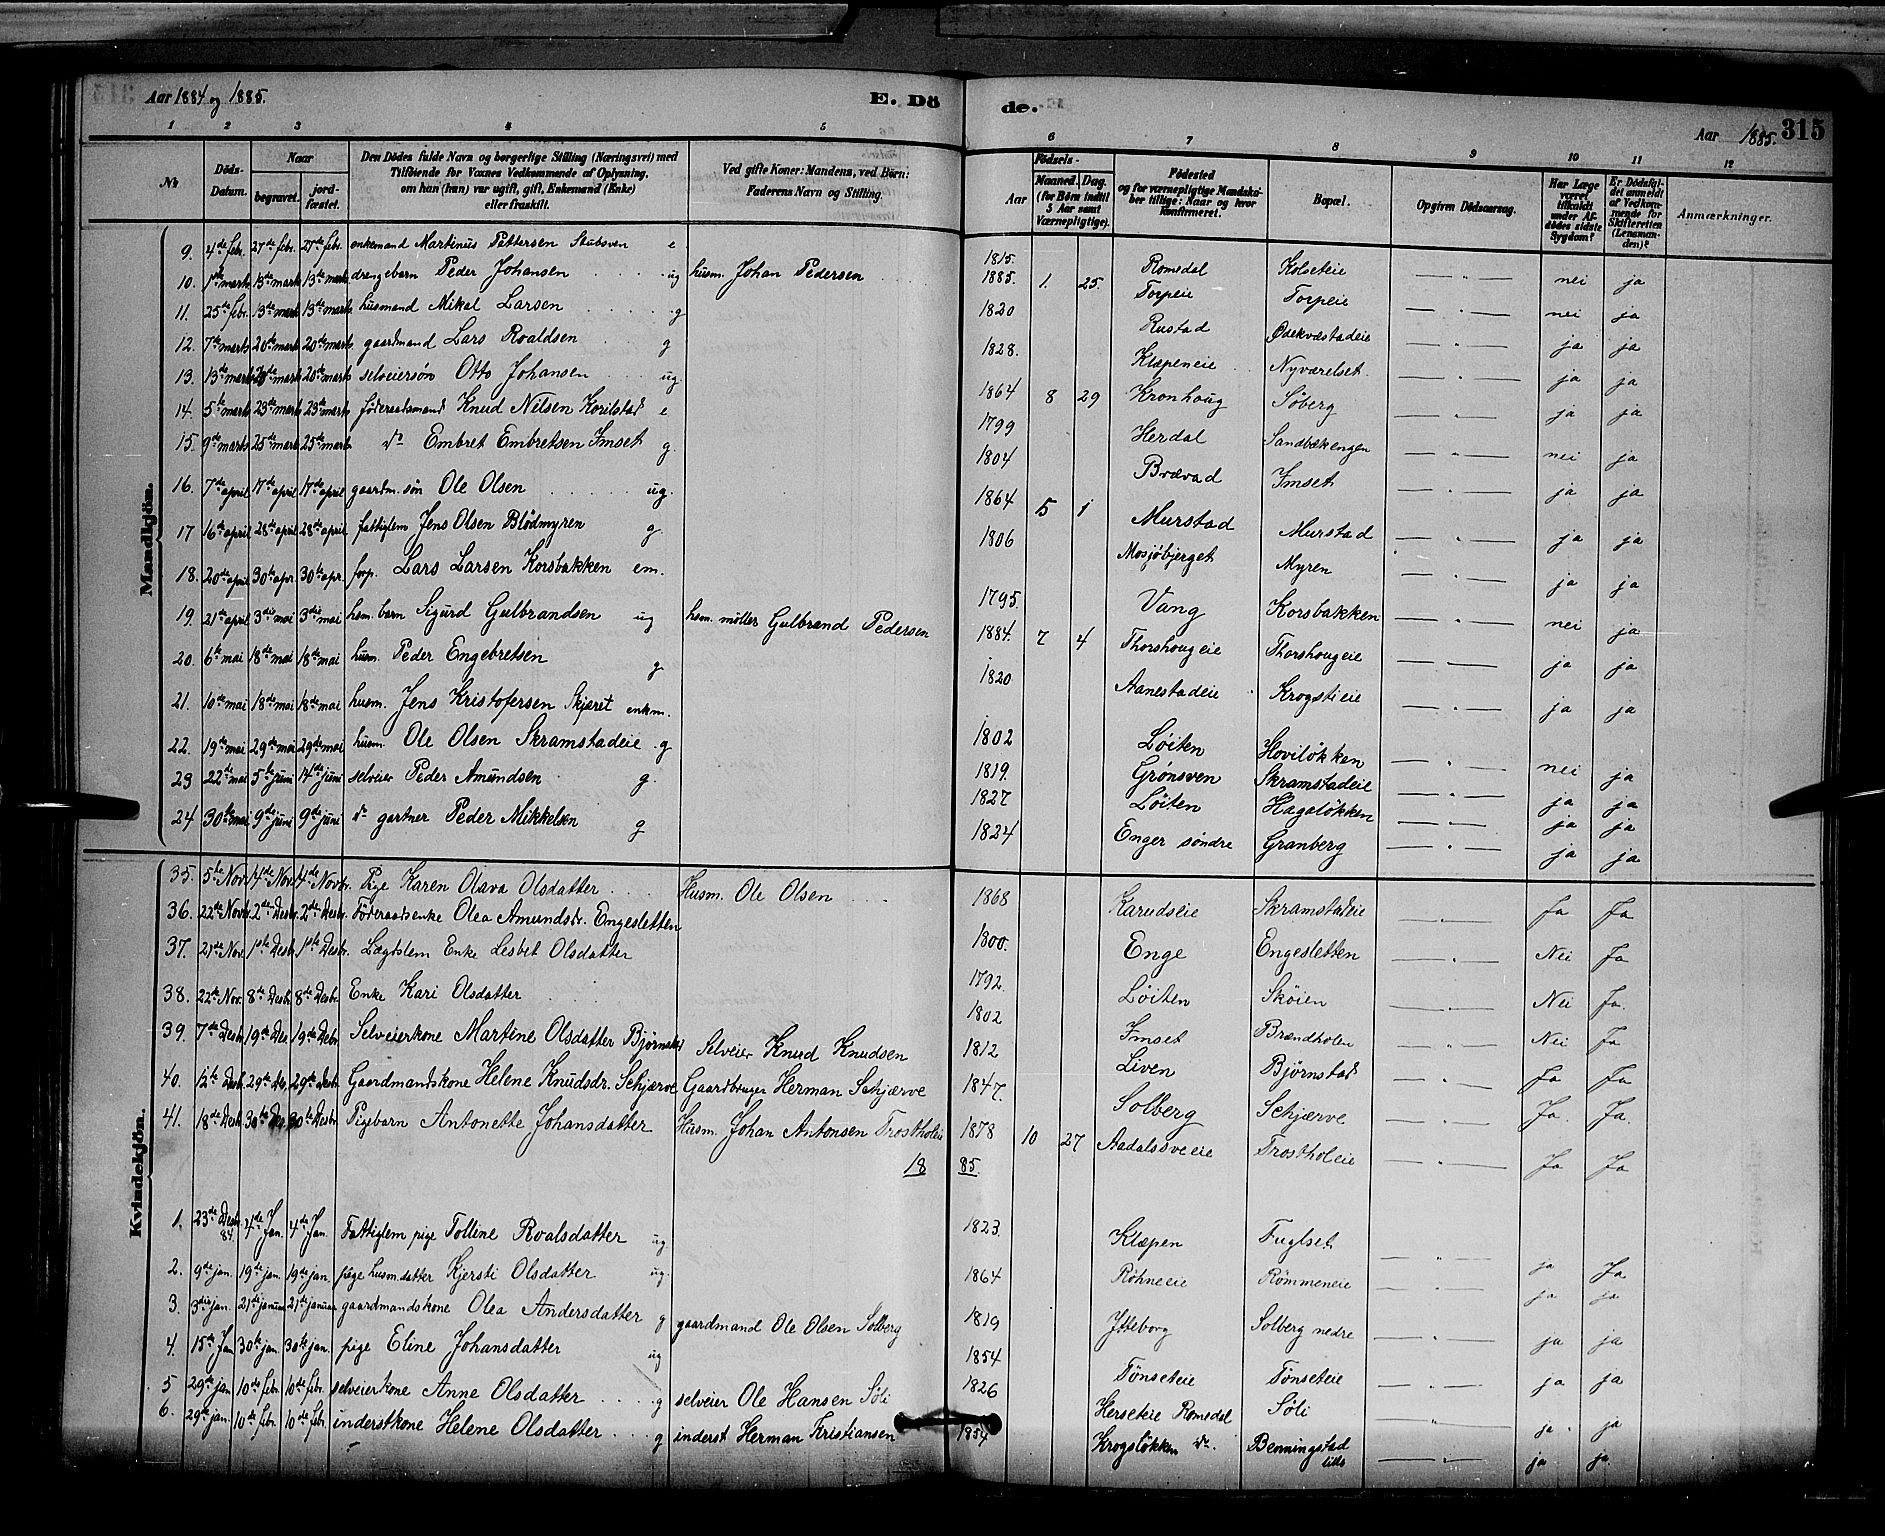 Aar 1884 og 1885. E. Dö de. Aar 1885. 315
1 2 3 4 5 6 7 8 9 10 11 12
No. Døds-Datum. Naar begravet. jordfæstet. Den Dødes fulde Navn og borgerlige Stilling (Næringsvei) med Tilføiende for Voxnes Vedkommende af Oplysning, om han (hun) var ugift, gift, Enkemand (Enke) eller fraskilt. Ved gifte Koner: Mandens, ved Børn: Faderens Navn og Stilling. Fødsels- Aar Maaned. Dag. (for Børn indtil 5 Aar samt Værnepligtige). Fødested og for værnepligtige Mandskaber tillige: Naar og hvor konfirmeret. Bopæl. Opgiven Dødsaarsag. Har Læge været tilkaldt under Afdødes sidste Sygdom? Er Dødsfaldet anmeldt af Vedkommende for Skifteretten (Lensmanden)? Anmærkninger.
Mandkjön.
9. 4de febr. 27de febr. 27de febr. enkemand Martinus Pettersen Stubsven e 1815. Romedal Kolseteie — " — nei ja
10. 1ste marts 13de marts 13de marts drengebarn Peder Johansen ug husm. Johan Pedersen 1885. 1. 25. Torpeie Torpeie — " — nei ja
11. 25de febr. 13de marts 13de marts husmand Mikal Larsen g 1820 Rustad Ödekvæstadeie — " — ja ja
12. 7de marts 20de marts 20de marts gaardmand Lars Roaldsen g 1828. Klæpeneie Nyværelset — " — ja ja
13. 13de marts 20de marts 20de marts selveiersøn Otto Johansen ug 1864 8 29 Kronhaug Søberg — " — ja ja
14. 5te marts 23de marts 23de marts föderaadsmand Knud Nilsen Korilstad e 1799 Herdal Sandbækengen — " — nei ja
15. 9de marts 25de marts 25de marts do Embret Embretsen Imset g. 1804 Brævad Imset — " — ja ja
16. 7de april 17de april 17de april gaardm. søn Ole Olsen ug. 1864 5 1 Murstad Murstad — " — ja ja
17 16de april 28de april 28de april fattiglem Jens Olsen Blödmyren g. 1806 Mosjöbjerget Myren — " — ja ja
18. 20de april 30te apr. 30te apr. forp. Lars Larsen Korsbakken em. 1795. Vang Korsbakken — " — nei ja
19. 21de april 3die mai 3die mai hsm. barn Sigurd Gulbrandsen ug hsm. møller Gulbrand Pedersen 1884. 7 4 Thorshougeie Thorshougeie — " — ja ja
20. 6te mai 18de mai 18de mai husm. Peder Engebretsen g 1820 Aanestadeie Krogstieie — " — ja ja
21. 10de mai 18de mai 18de mai husm. Jens Kristofersen Skjæret enkm. 1802 Løiten Hoviløkken — " — nei ja
22. 19de mai 29de mai 29de mai husm. Ole Olsen Skramstadeie g 1819. Grønsven Skramstadeie — " — ja ja
23 22de mai 5te juni 14de juni selveier Peder Amundsen g. 1827 Løiten Hageløkken — " — ja ja
24 30te mai 9de juni 9de juni do gartner Peder Mikkelsen g 1824 Enger søndre Granberg — " — ja ja
Kvindekjön.
35. 5te Nov. 14de Nov. 14de Novbr. Pige Karen Olava Olsdatter Husm. Ole Olsen 1868 Karudseie Skramstadeie — " — Ja Ja
36. 22de Novbr. 2den Desbr. 2den Desbr. Föderaadsenke Olea Amundsdr. Engesletten 1800. Enge Engesletten — " — Nei Ja
37. 21de Nov. 1ste Desbr. 1ste Desbr. Lægdslem Enke Lesbet Olsdatter 1792. Løiten Skøien — " — Nei Ja.
38. 22de Nov. 8de Desbr. 8de Desbr. Enke Kari Olsdatter 1802 Imset Brændholen — " — Nei Ja
39. 7de Desbr. 19de Des. 19de Debr. Selveierkone Martine Olsdatter Bjørnstad Selveier Knud Knudsen 1812 Liven Bjørnstad — " — Ja Ja
40. 12te Desbr. 29de Des. 29de Desbr. Gaardmandskone Helene Knudsdr. Schjærve Gaardbruger Herman Schjærve 1847. Solberg Schjærve — " — Ja. Ja.
41. 18de Desbr. 30te Des. 30te Desbr. Pigebarn Antonette Johansdatter Husm. Johan Antonsen Trostholeie 1878 10 27 Aadalssveeie Trostholeie — " — Ja Ja
18 85.
1. 23de Desbr. 84. 4de Jan. 4de Jan. Fattiglem pige Tollene Roalsdatter ug 1823. Klæpen Fuglset — " — ja Ja
2. 9de jan. 19de jan. 19de jan. pige husm.datter Kjersti Olsdatter ug. 1864 Röhneeie Römmeneie — " — ja ja
3. 3die jan. 21de januar 21de januar gaardmandskone Olea Andersdatter g gaardmand Ole Olsen Solberg 1819 Itteborg Solberg nedre — " — ja ja
4. 15de Jan 30te jan. 30te jan. pige Eline Johansdatter ug 1854 Tönseteie Tönseteie — " — ja ja
5 29de jan 10de febr. 10de febr. selveierkone Anne Olsdatter g selveier Ole Hansen Søli 1826 Herseteie Romedal Søli — " — ja ja
6. 29de jan. 10de febr. 10de febr. inderstkone Helene Olsdatter g inderst Herman Kristiansen 1854 Krogsløkken do. Benningstad lille — " — ja ja.